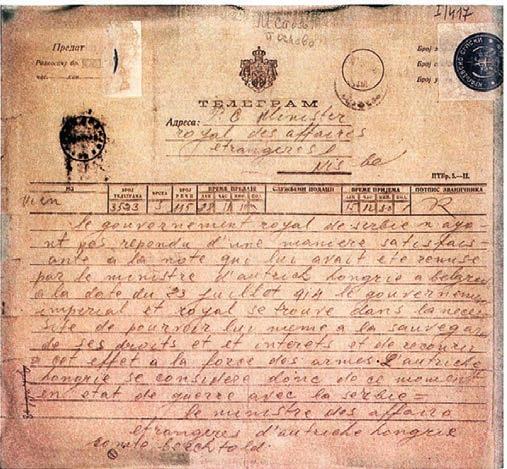 I/417
Предат
ТЕЛЕГРАМ
Адреса: S. E. Ministre
royal des affaires
etrangeres
Nis
ПТБр. 5.—II.
ИЗ БРОЈ ТЕЛЕГРАМА ВРСТА БРОЈ РЕЧИ ВРЕМЕ ПРЕДАЈЕ СЛУЖБЕНИ ПОДАЦИ ВРЕМЕ ПРИЈЕМА ПОТПИС ЗВАНИЧНИКА
Wien 3523 115
le gouvernement royal de serbie n ay-
nt pas repondu d'une maniere satisfais-
ante a la note qui lui avait ete remise
par le ministre d'autrich hongrie a belgra
a la date du 23 juillot 914 le gouvernem
imperial et royal se trouve dans la neces
site de pourvoir lui meme a la sauvegar
de ses droits et interets et de recourir
a cet effet a la force des armes. L'autrich
hongrie se considere donc de ce moment
en état de guerre avec la serbie =
le ministre des affaire
etrangeres d'autriche hongrie
comte berchtold.